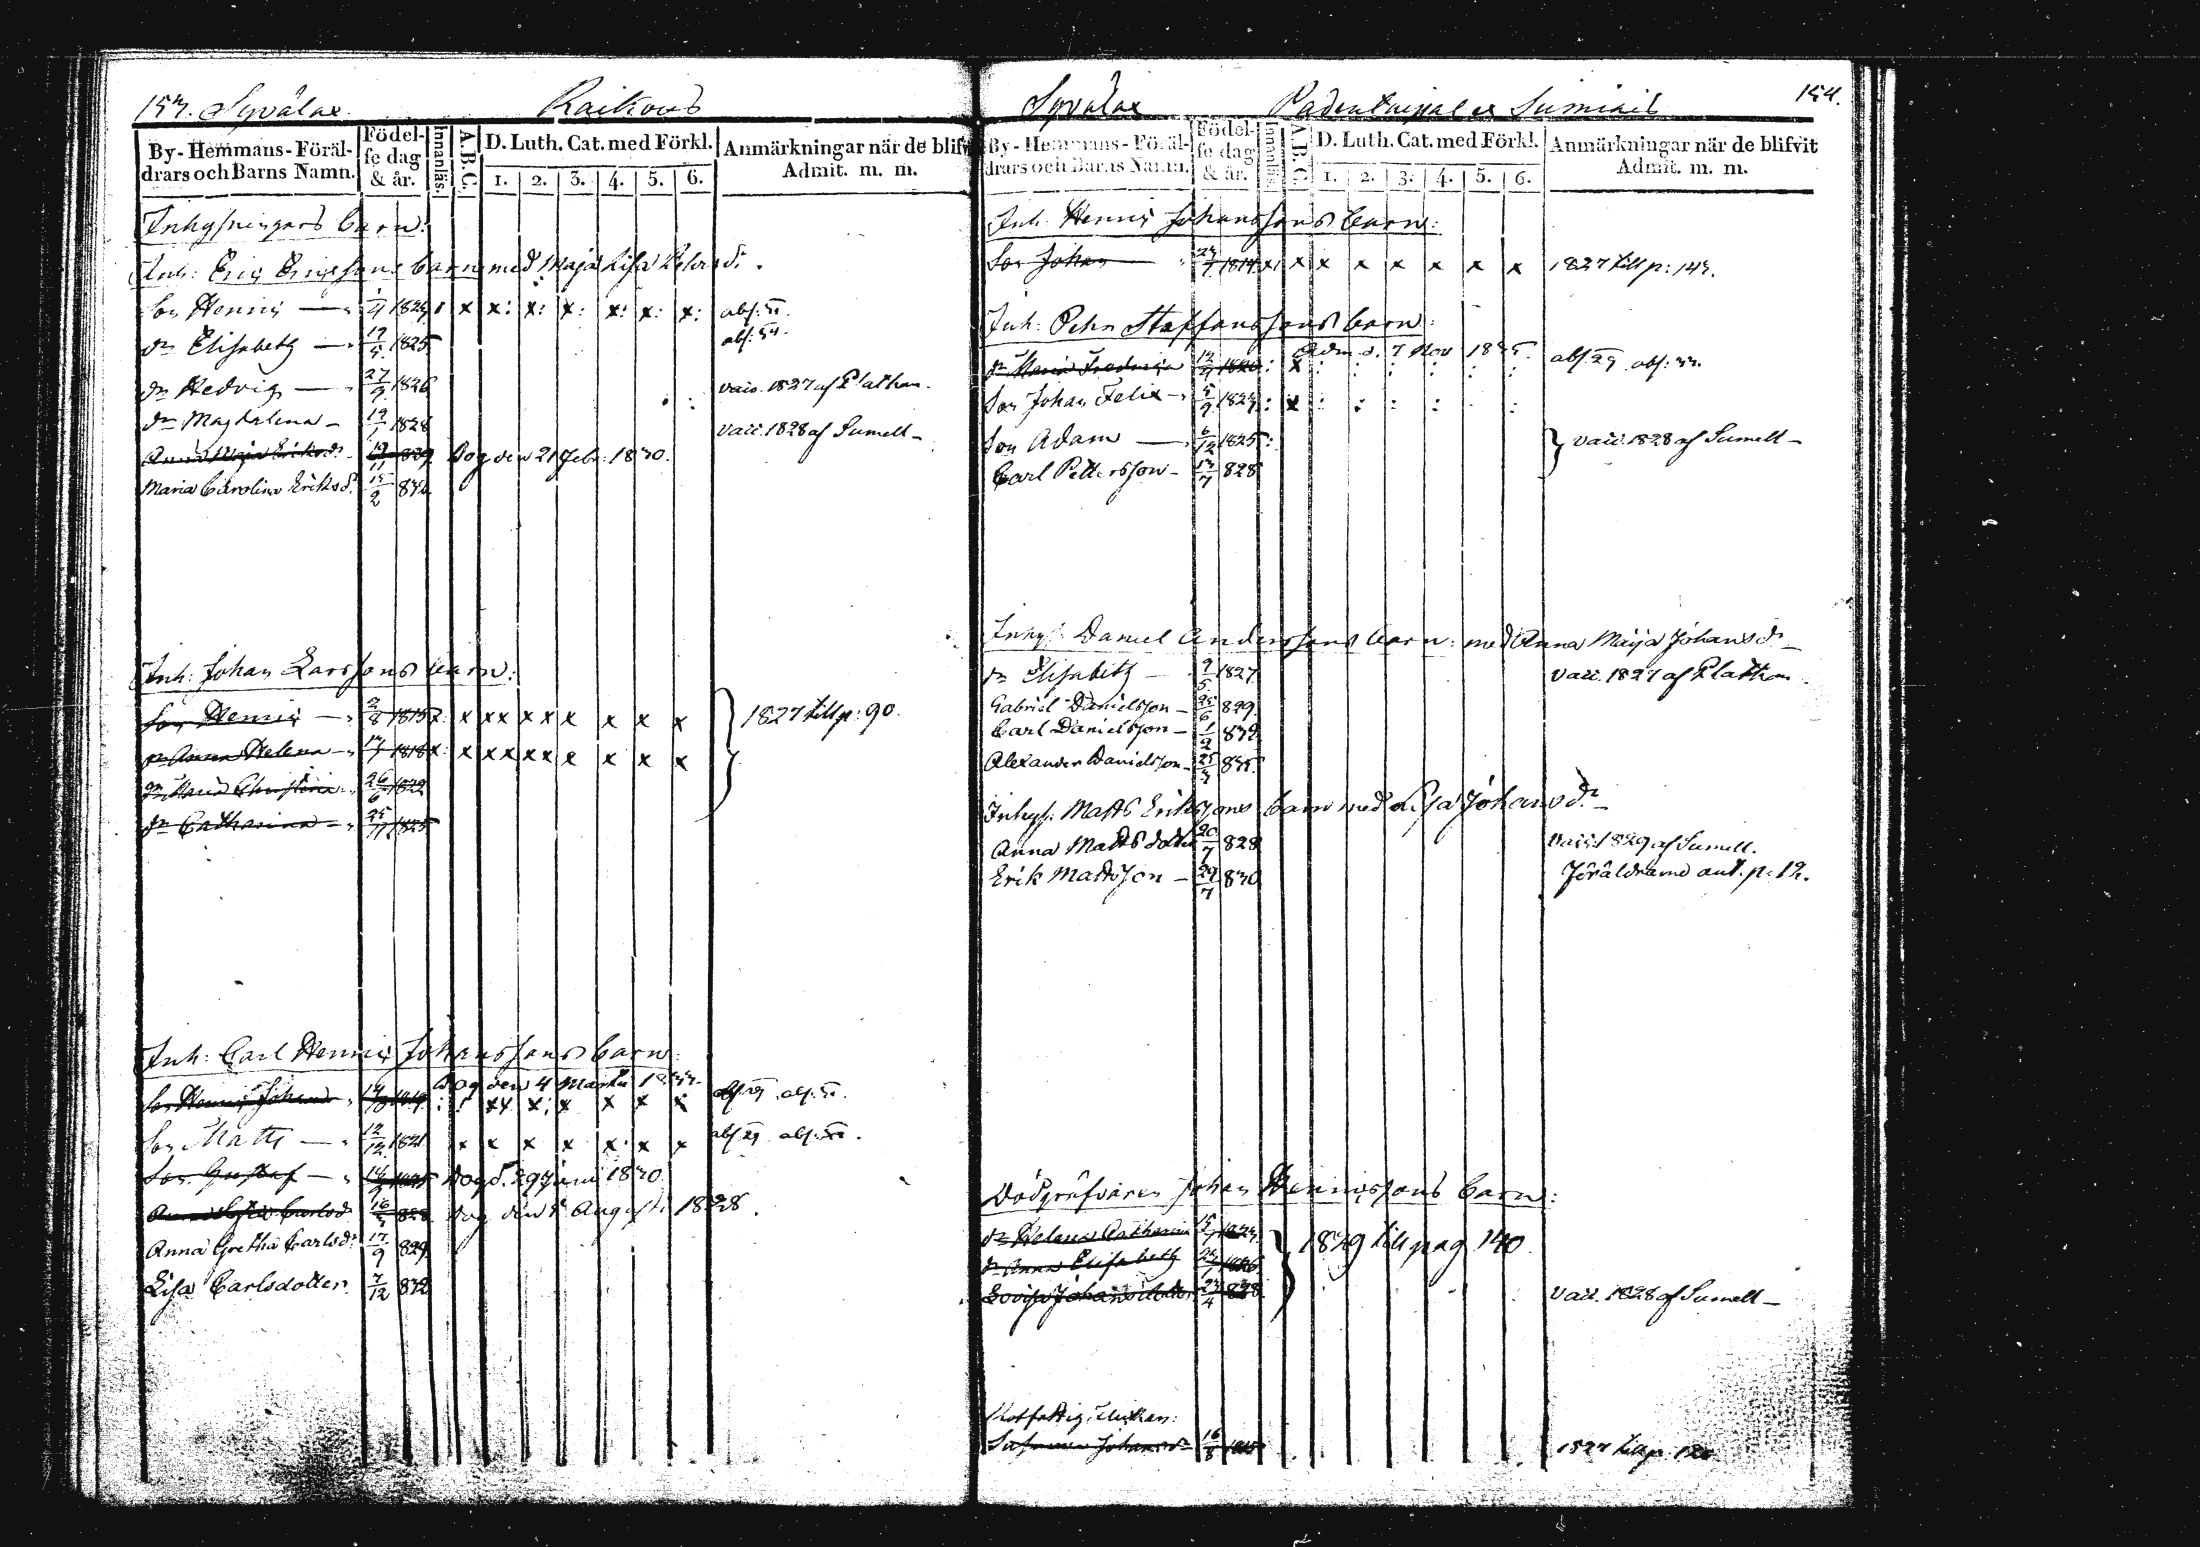 153. Syvälax Raikous
By-Hemmans-Föräl-drars och Barns Namn. Födel-se dag & år. Innanläs. A.B.C. D. Luth. Cat. med Förkl. Anmärkningar när de blifv Admit. m. m.
1. 2. 3. 4. 5. 6.
Inhysningars barn:
Inh: Eric Ericssons barn med Maja Lisa Pehrsdr.
Son Henric — 1/4 1823 x x: x: x: x: x: x: abs: 33.
dr Elisabeth — 19/5 1825 abs: 34.
dr Hedvig — 27/9 1826 vacc. 1827 af Plathan.
dr Magdalena — 19/1 1828 vacc. 1828 af Sumell —
Anna Maja Eriksdr 829 Dog den 21 Febr. 1830.
Maria Carolina Eriksd. 15/2 832
Inh: Johan Larssons barn:
Son Henric — 2/8 1815 x: x xx xx x x x x 1827 till p: 90.
dr Anna Helena — 1818 x: x xx xx x x x x
dr Maria Christina — 26/6 1822
dr Catharina — 25/11 1825
Inh: Carl Henric Johanssons barn:
Son Henric Johan Dog den 4 Martii 1833. abs. 29. abs: 33.
Son Matts — 12/12 1821 x x x x x x x abs 29 abs:
Son Gustaf — Dog d. 29 Juni 1830.
Anna Carlsd. 16/5 828 Dog den 8 August. 1828.
Anna Gretha Carlsdr 17/9 829
Lisa Carlsdotter. 7/12 832
Syvälax 154.
By-Hemmans-Föräl-drars och Barns Namn. Födel-se dag & år. Innanläs. A.B.C. D. Luth. Cat. med Förkl. Anmärkningar när de blifvit Admit. m. m.
1. 2. 3. 4. 5. 6.
Inh: Henric Johanssons barn:
Son Johan — 1814 x: x x x x x x x 1827 till p: 143.
Inh: Pehr Staffanssons barn:
dr Maria Fredrica 1820 Adm. d. 7 Nov 1835. abs. 29 abs: 33.
Son Johan Felix — 5/9 1823
Son Adam — 6/12 1825 vacc. 1828 af Sumell —
Carl Pettersson — 13/7 828
Inhys: Daniel Anderssons barn: med Anna Maija Johansdr —
dr Elisabeth — 9/5 1827 vacc. 1827 af Plathan.
Gabriel Danielsson — 25/6 829
Carl Danielsson — 1/2 832
Alexander Danielsson — 835.
Inhys: Matts Erikssons barn med Lisa Johansdr —
Anna Mattsdotter 20/7 828 vacc. 1829 af Sumell.
Erik Mattsson — 29/7 830 Föräldrarne ant. p: 12.
Dödgräfvaren Johan Henricssons barn:
dr Helena Catharina 1829 till pag 140
dr Anna Elisabeth 1826
Lovisa Johansdotter 23/4 828 vacc. 1828 af Sumell —
Rotfattig flickan:
Susanna Johansdr 16/8 1815 1827 till p.